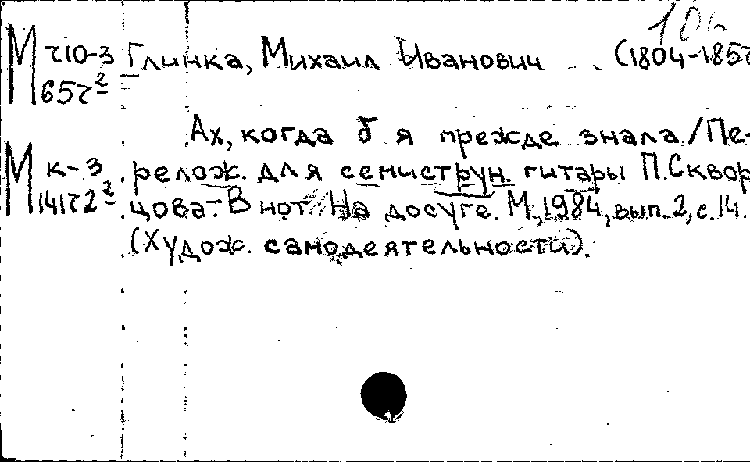 М ч10-3 Глинка, Михаил Иванович (1804-1857
65г2
Ах, когда б я прежде знала/Пе-
М к-3 релож. для семиструн. гитары П.Сквор
141г2 2 цова.-В нот. На досуге. М.,1984, вып.2, с.14.
(Худож. самодеятельности).